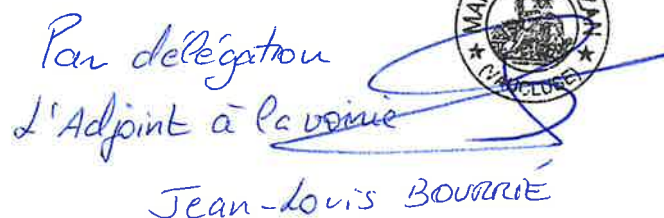 Par délégation
L'Adjoint à la voirie
Jean-Louis BOURRIÉ
(VAUCLUSE)